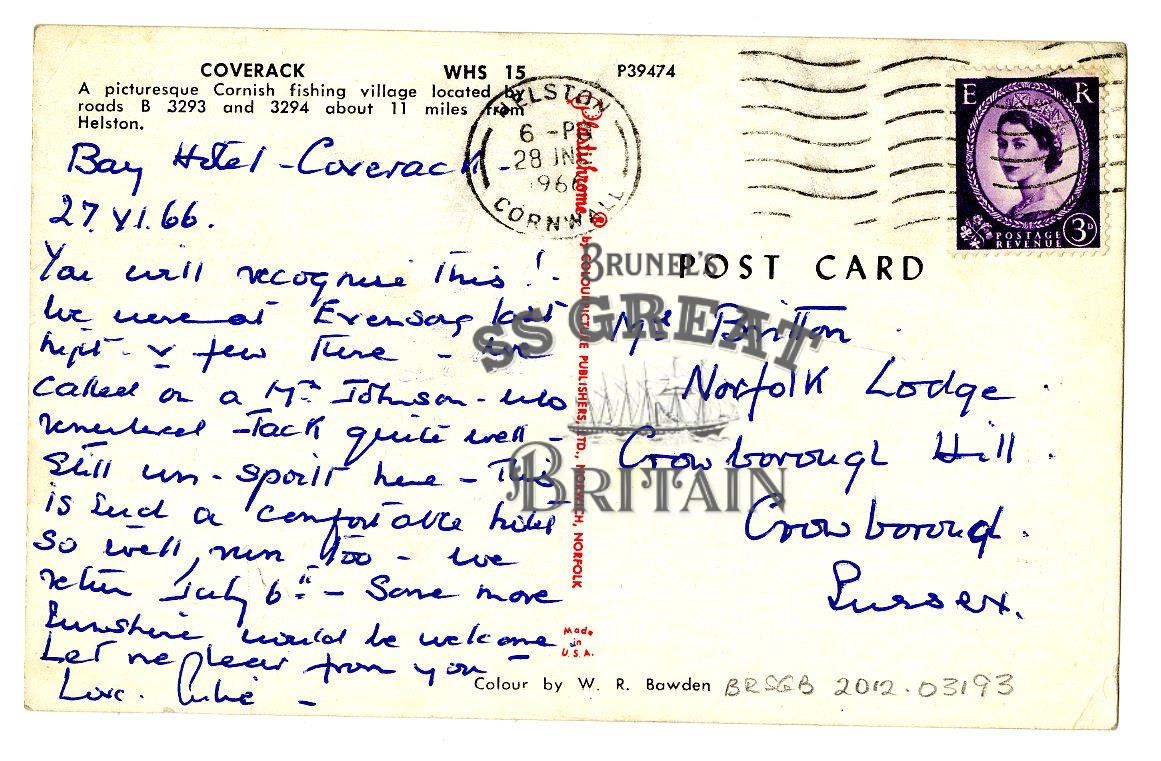 COVERACK WHS 15 P39474
A picturesque Cornish fishing village located by
roads B 3293 and 3294 about 11 miles from
Helston.
HELSTON
6 - PM
28 JNE
1966
CORNWALL
E R
POSTAGE
REVENUE
3D
Bay Hotel - Coverack -
27.VI.66.
You will recognise this! -
We were at Evensong last
night - v few there - we
called on a Mrs Johnson - who
remembered Jack quite well -
Still un-spoilt here - This
is such a comfortable hotel
so well run too - we
return July 6th - Some more
Sunshine would be welcome
Let me hear from you -
Love.
Plastichrome ®
by COLOURPICTURE PUBLISHERS, LTD., NORWICH, NORFOLK
Made
in
U.S.A.
POST CARD
BRUNEL'S
SS GREAT
BRITAIN
Britton
Norfolk Lodge
Crowborough Hill.
Crowborough.
Sussex.
Colour by W. R. Bawden
BRSGB 2012.03193